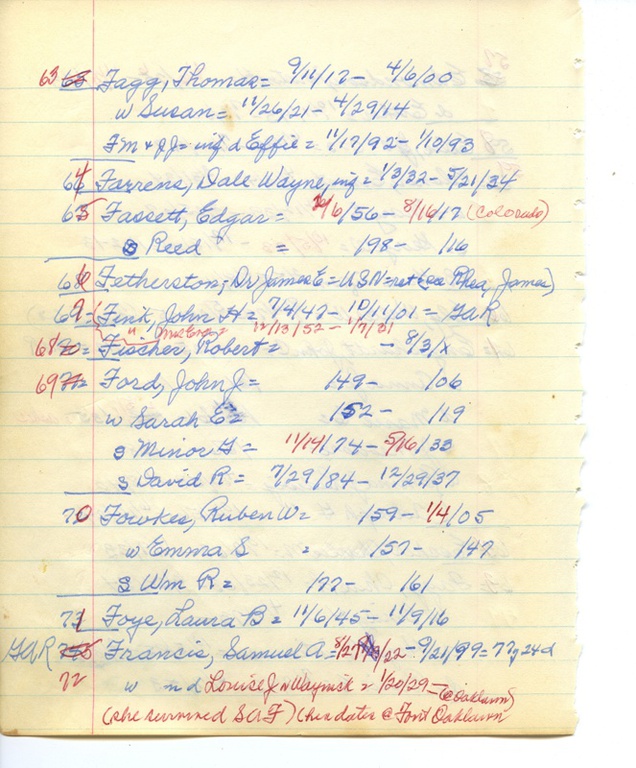 63 Fagg, Thomas = 9/11/17 - 4/6/00
w Susan = 11/26/21 - 4/29/14
FM & JJ = inf d Effie = 11/17/92 - 1/10/93
64 Farrens, Dale Wayne, inf = 1/3/32 - 5/21/34
65 Fassett, Edgar = /6/56 - 8/16/17 (Colorado)
s Reed = /98 - /16
66 Fetherston, Dr James E = USN = ret (see Rhea, James)
Fink, John H = 7/4/47 - 10/11/01 = GAR
" 12/13/52 - 1/7/31
68 Fischer, Robert = - 8/3/x
69 Ford, John J = /49 - /06
w Sarah E = /52 - /19
s Minor G = 11/14/74 - 5/16/33
s David R = 7/29/84 - 12/29/37
70 Fowkes, Ruben W = /59 - 1/4/05
w Emma S = /57 - /47
s Wm R = /77 - /61
71 Foye, Laura B = 11/6/45 - 11/9/16
GAR Francis, Samuel A = 8/27/22 - 9/21/99 = 77y 24d
72 w m d Louise J v Waynick = 1/20/29 - (@ Oaklawn)
(she survived SAF) (her dates @ Font Oaklawn